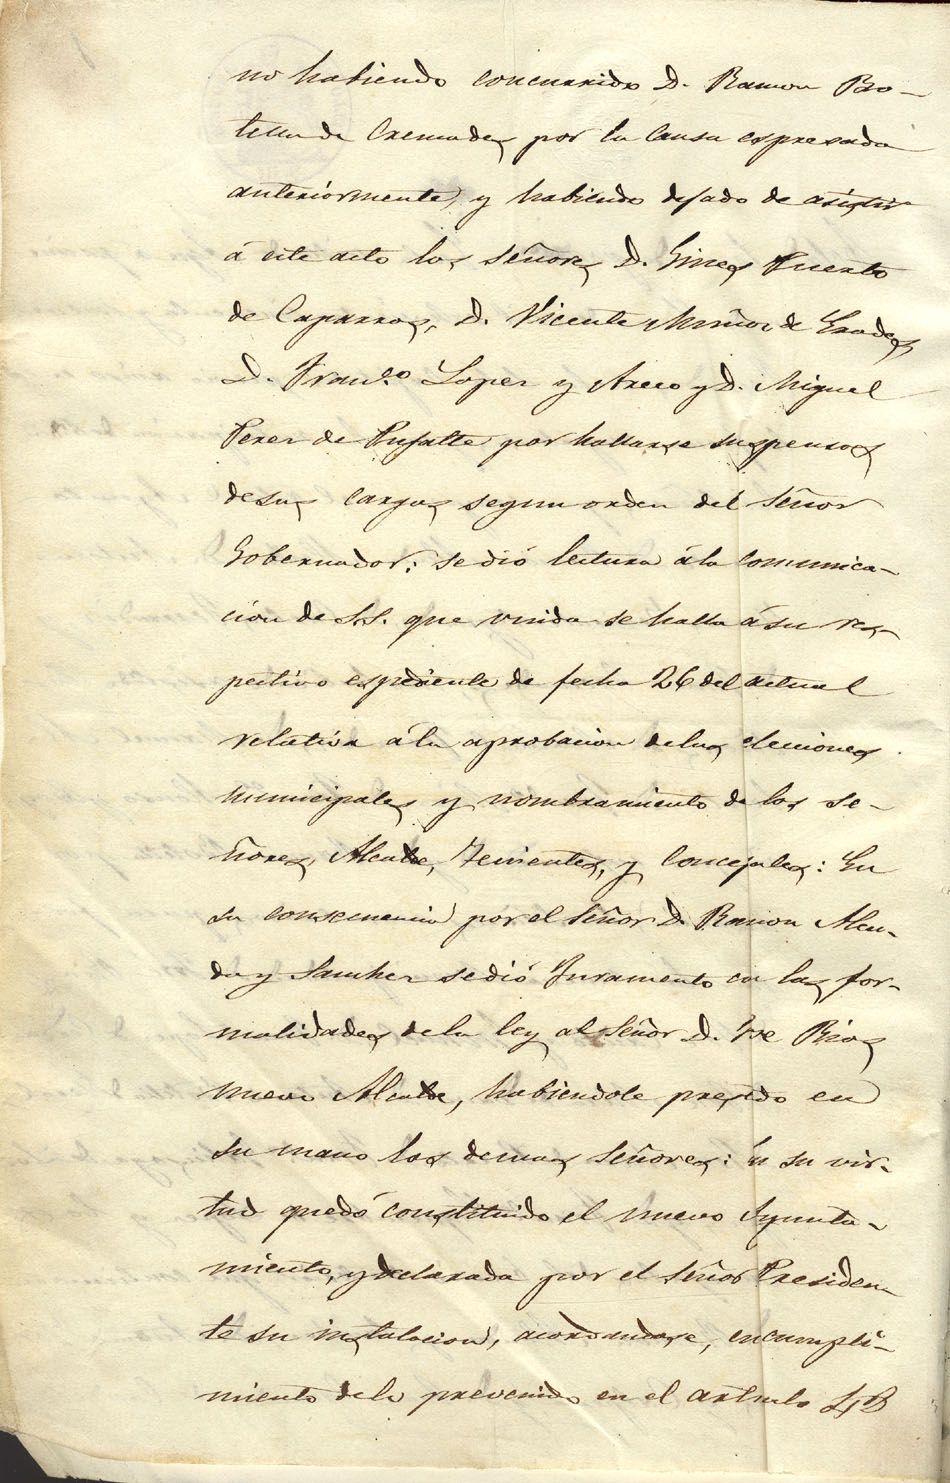 no habiendo concurrido D. Ramon Bo-
tella de Cremades por la causa espresada
anteriormente, y habiendo dejado de asistir
á este acto los señores D. Gines Puerto
de Caparros, D. Vicente Muñoz de Grades
D. Franco. Lopez y ArExo y D. Miguel
Perez de Pujalte por hallarse suspensos
de sus cargos segun orden del Señor
Gobernador; se dió lectura á la comunica-
cion de S.S. que unida se halla á su res-
pectivo espediente de fecha 26 del actual
relativa á la aprobacion de las elecciones
municipales y nombramiento de los se-
ñores, Alcalde, Tenientes, y Concejales: En
su consecuencia por el Señor D. Ramon Alcu-
da y Sanchez se dió Juramento en las for-
malidades de la ley al Señor D. Jose Rios
nuevo Alcalde, habiendole prestado en
su mano los demas señores: En su vir-
tud quedó constituido el nuevo Ayunta-
miento, y declarada por el Señor Presiden-
te su instalacion, acordandose, en cumpli-
miento de lo prevenido en el articulo 48